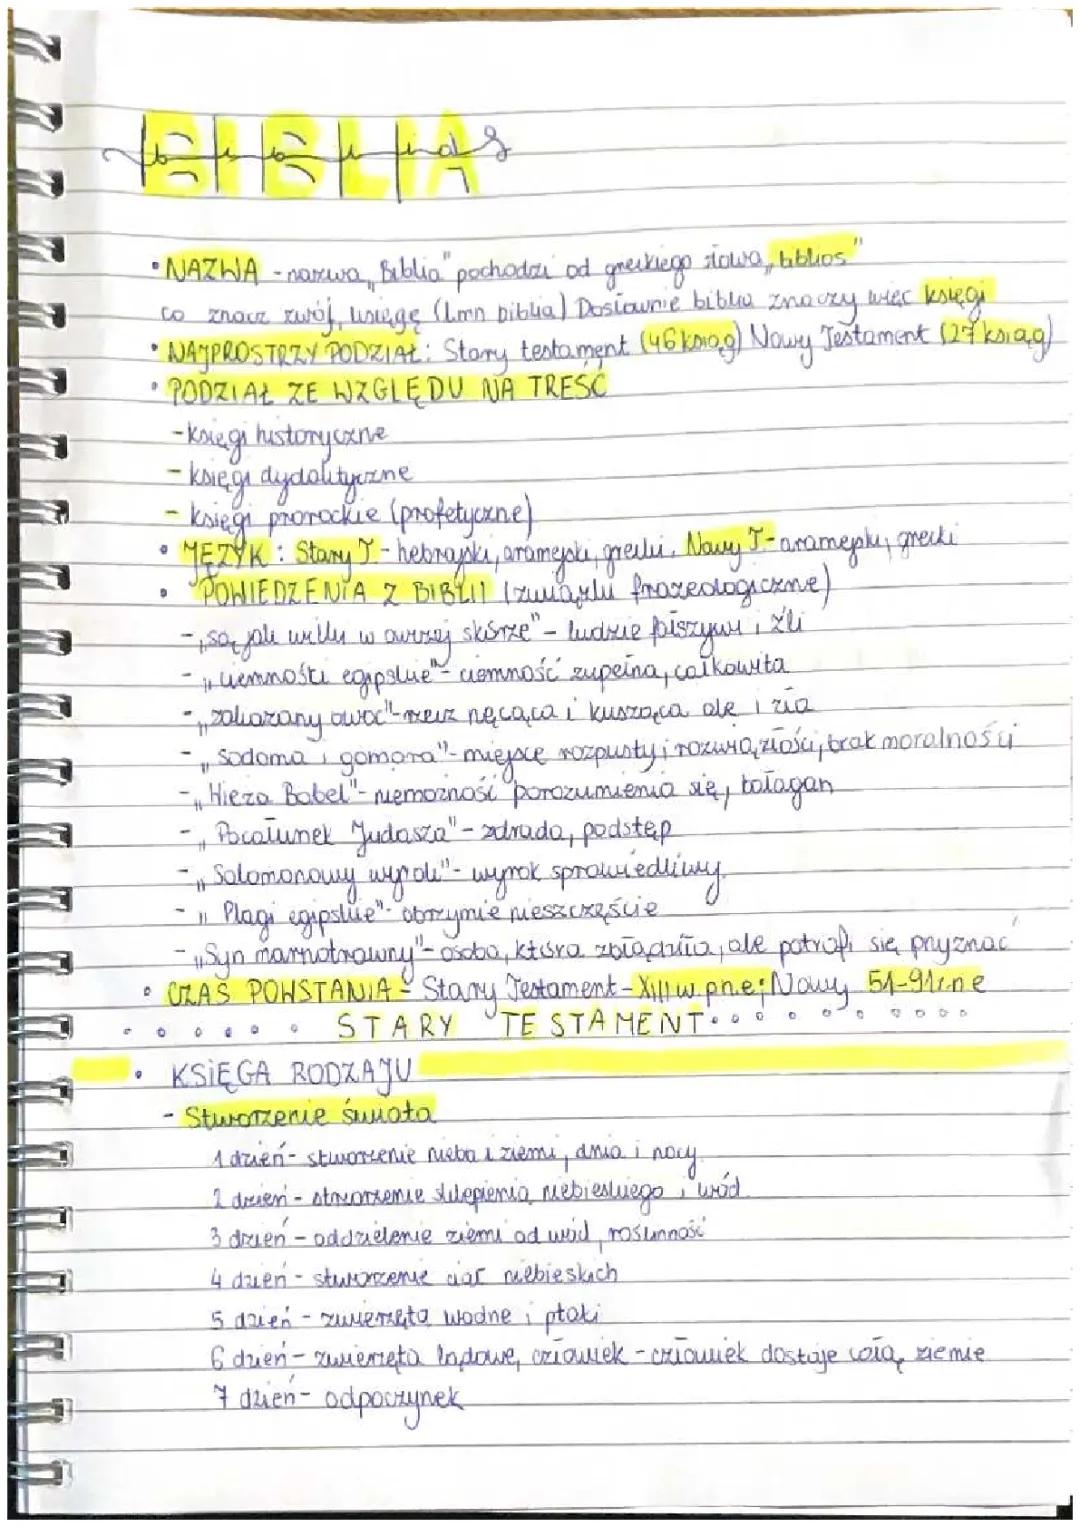 BIBLIA
• NAZWA - nazwa „Biblia" pochodzi od greckiego słowa „biblios"
co znacz zwój, księgę (lmn biblia) Dosłownie biblia znaczy więc księgi
• NAJPROSTRZY PODZIAŁ: Stary testament (46 ksiąg) Nowy Testament (27 ksiąg)
• PODZIAŁ ZE WZGLĘDU NA TREŚĆ
- księgi historyczne
- księgi dydaktyczne
- księgi prorockie (profetyczne)
• JĘZYK: Stary T. - hebrajski, aramejski, grecki. Nowy T - aramejski, grecki
• POWIEDZENIA Z BIBLII (związki frazeologiczne)
- „są jak wilki w owczej skórze" - ludzie fałszywi i źli
- „ciemności egipskie" - ciemność zupełna, całkowita
- „zakazany owoc" - rzecz nęcąca i kusząca ale i zła
- „Sodoma i gomora" - miejsce rozpusty i rozwiązłości, brak moralności
- „Wieża Babel" - niemożność porozumienia się, bałagan
- „Pocałunek Judasza" - zdrada, podstęp
- „Salomonowy wyrok" - wyrok sprawiedliwy
- „Plagi egipskie" - olbrzymie nieszczęście
- „Syn marnotrawny" - osoba, która zbłądziła, ale potrafi się pryznać
• CZAS POWSTANIA - Stary Testament - XIII w p.n.e; Nowy 51-91r.n.e
STARY TESTAMENT
• KSIĘGA RODZAJU
- Stworzenie świata
1 dzień - stworzenie nieba i ziemi, dnia i nocy
2 dzień - stworzenie sklepienia niebieskiego i wód
3 dzień - oddzielenie ziemi od wód, roślinność
4 dzień - stworzenie ciał niebieskich
5 dzień - zwierzęta wodne i ptaki
6 dzień - zwierzęta lądowe, człowiek - człowiek dostaje całą ziemie
7 dzień - odpoczynek